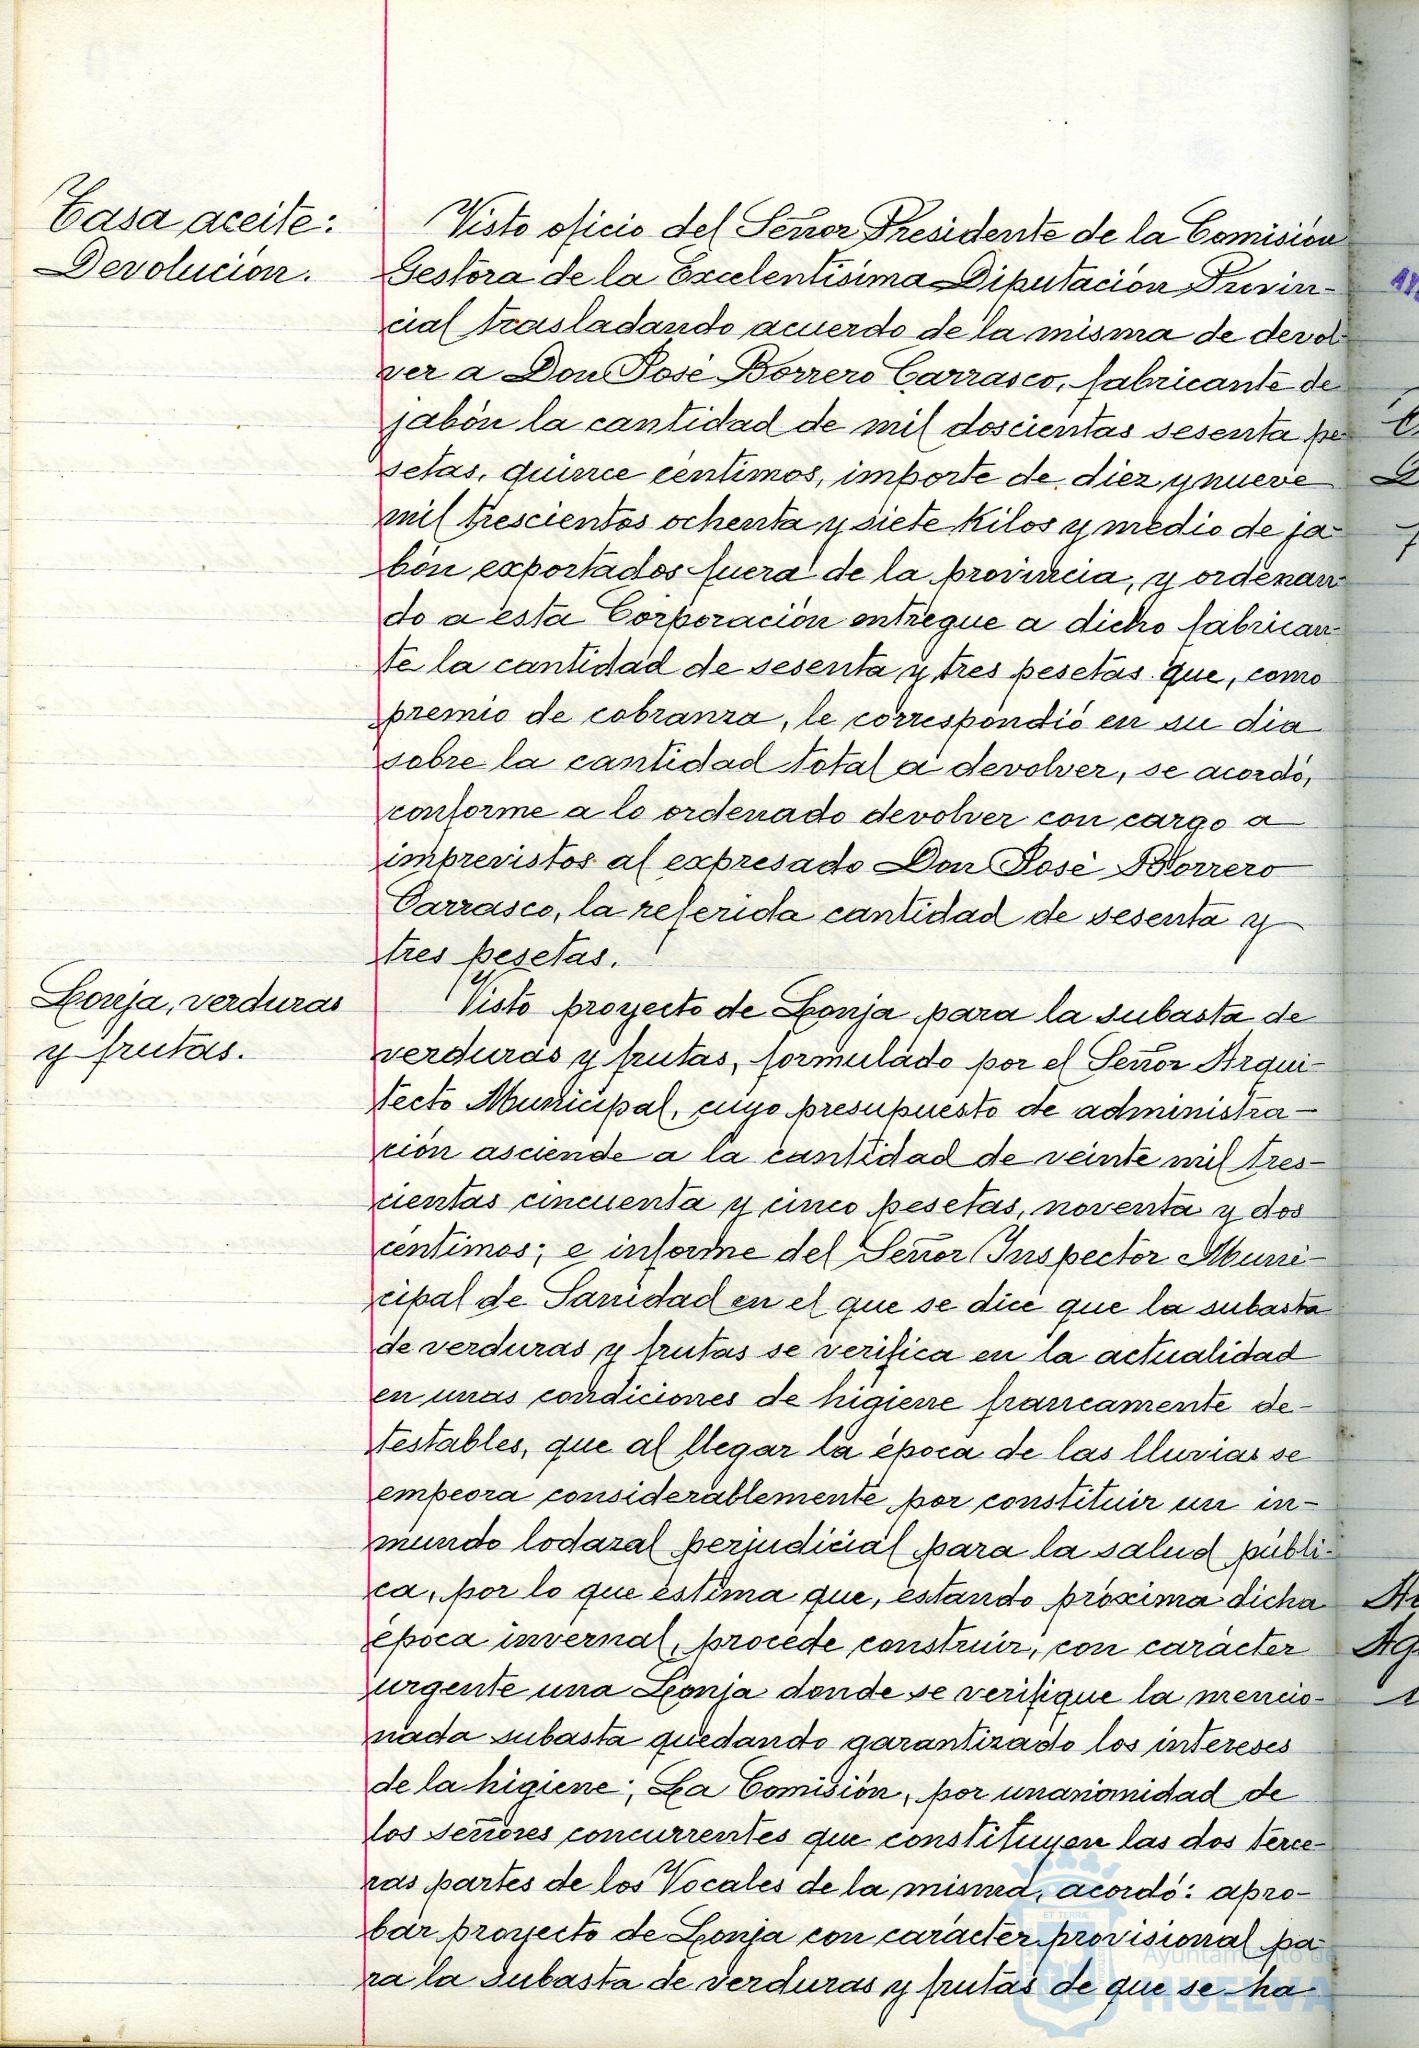 Tasa aceite:
Devolución.
Visto oficio del Señor Presidente de la Comisión
Gestora de la Excelentísima Diputación Provin-
cial trasladando acuerdo de la misma de devol-
ver a Don José Borrero Carrasco, fabricante de
jabón la cantidad de mil doscientas sesenta pe
setas, quince céntimos, importe de diez y nueve
mil trescientos ochenta y siete kilos y medio de ja
bón exportados fuera de la provincia, y ordenan
do a esta Corporación entregue a dicho fabrican
te la cantidad de sesenta y tres pesetas que, como
premio de cobranza, le correspondió en su dia
sobre la cantidad total a devolver, se acordó,
conforme a lo ordenado devolver con cargo a
imprevistos al expresado Don José Borrero
Carrasco, la referida cantidad de sesenta y
tres pesetas.
Lonja, verduras
y frutas.
Visto proyecto de Lonja para la subasta de
verduras y frutas, formulado por el Señor Arqui-
tecto Municipal, cuyo presupuesto de administra-
ción asciende a la cantidad de veinte mil tres-
cientas cincuenta y cinco pesetas, noventa y dos
céntimos; e informe del Señor Inspector Muni-
cipal de Sanidad en el que se dice que la subasta
de verduras y frutas se verifica en la actualidad
en unas condiciones de higiene francamente de-
testables, que al llegar la época de las lluvias se
empeora considerablemente por constituir un in-
mundo lodazal perjudicial para la salud públi-
ca, por lo que estima que, estando próxima dicha
época invernal, procede construir, con carácter
urgente una Lonja donde se verifique la mencio-
nada subasta quedando garantizado los intereses
de la higiene; La Comisión, por unanimidad de
los señores concurrentes que constituyen las dos terce-
ras partes de los Vocales de la misma, acordó: apro-
bar proyecto de Lonja con carácter provisional pa
ra la subasta de verduras y frutas de que se ha
Ayuntamiento de
HUELVA